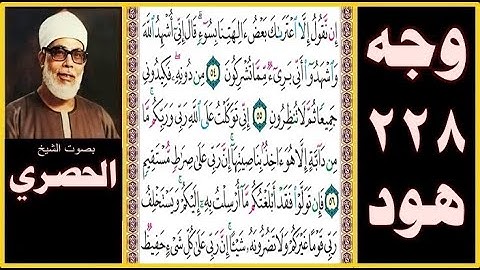 وجه
٢٢٨
هود
إِن نَّقُولُ إِلَّا ٱعْتَرَىٰكَ بَعْضُ ءَالِهَتِنَا بِسُوٓءٍ ۗ قَالَ إِنِّىٓ أُشْهِدُ ٱللَّهَ
وَٱشْهَدُوٓا۟ أَنِّى بَرِىٓءٌ مِّمَّا تُشْرِكُونَ ٥٤ مِن دُونِهِۦ ۖ فَكِيدُونِى
جَمِيعًا ثُمَّ لَا تُنظِرُونِ ٥٥ إِنِّى تَوَكَّلْتُ عَلَى ٱللَّهِ رَبِّى وَرَبِّكُم ۚ مَّا
مِن دَآبَّةٍ إِلَّا هُوَ ءَاخِذٌۢ بِنَاصِيَتِهَآ ۚ إِنَّ رَبِّى عَلَىٰ صِرَٰطٍ مُّسْتَقِيمٍ
٥٦ فَإِن تَوَلَّوْا۟ فَقَدْ أَبْلَغْتُكُم مَّآ أُرْسِلْتُ بِهِۦٓ إِلَيْكُمْ ۚ وَيَسْتَخْلِفُ
رَبِّى قَوْمًا غَيْرَكُمْ وَلَا تَضُرُّونَهُۥ شَيْـًٔا ۚ إِنَّ رَبِّى عَلَىٰ كُلِّ شَىْءٍ حَفِيظٌ
بصوت الشيخ
الحصري